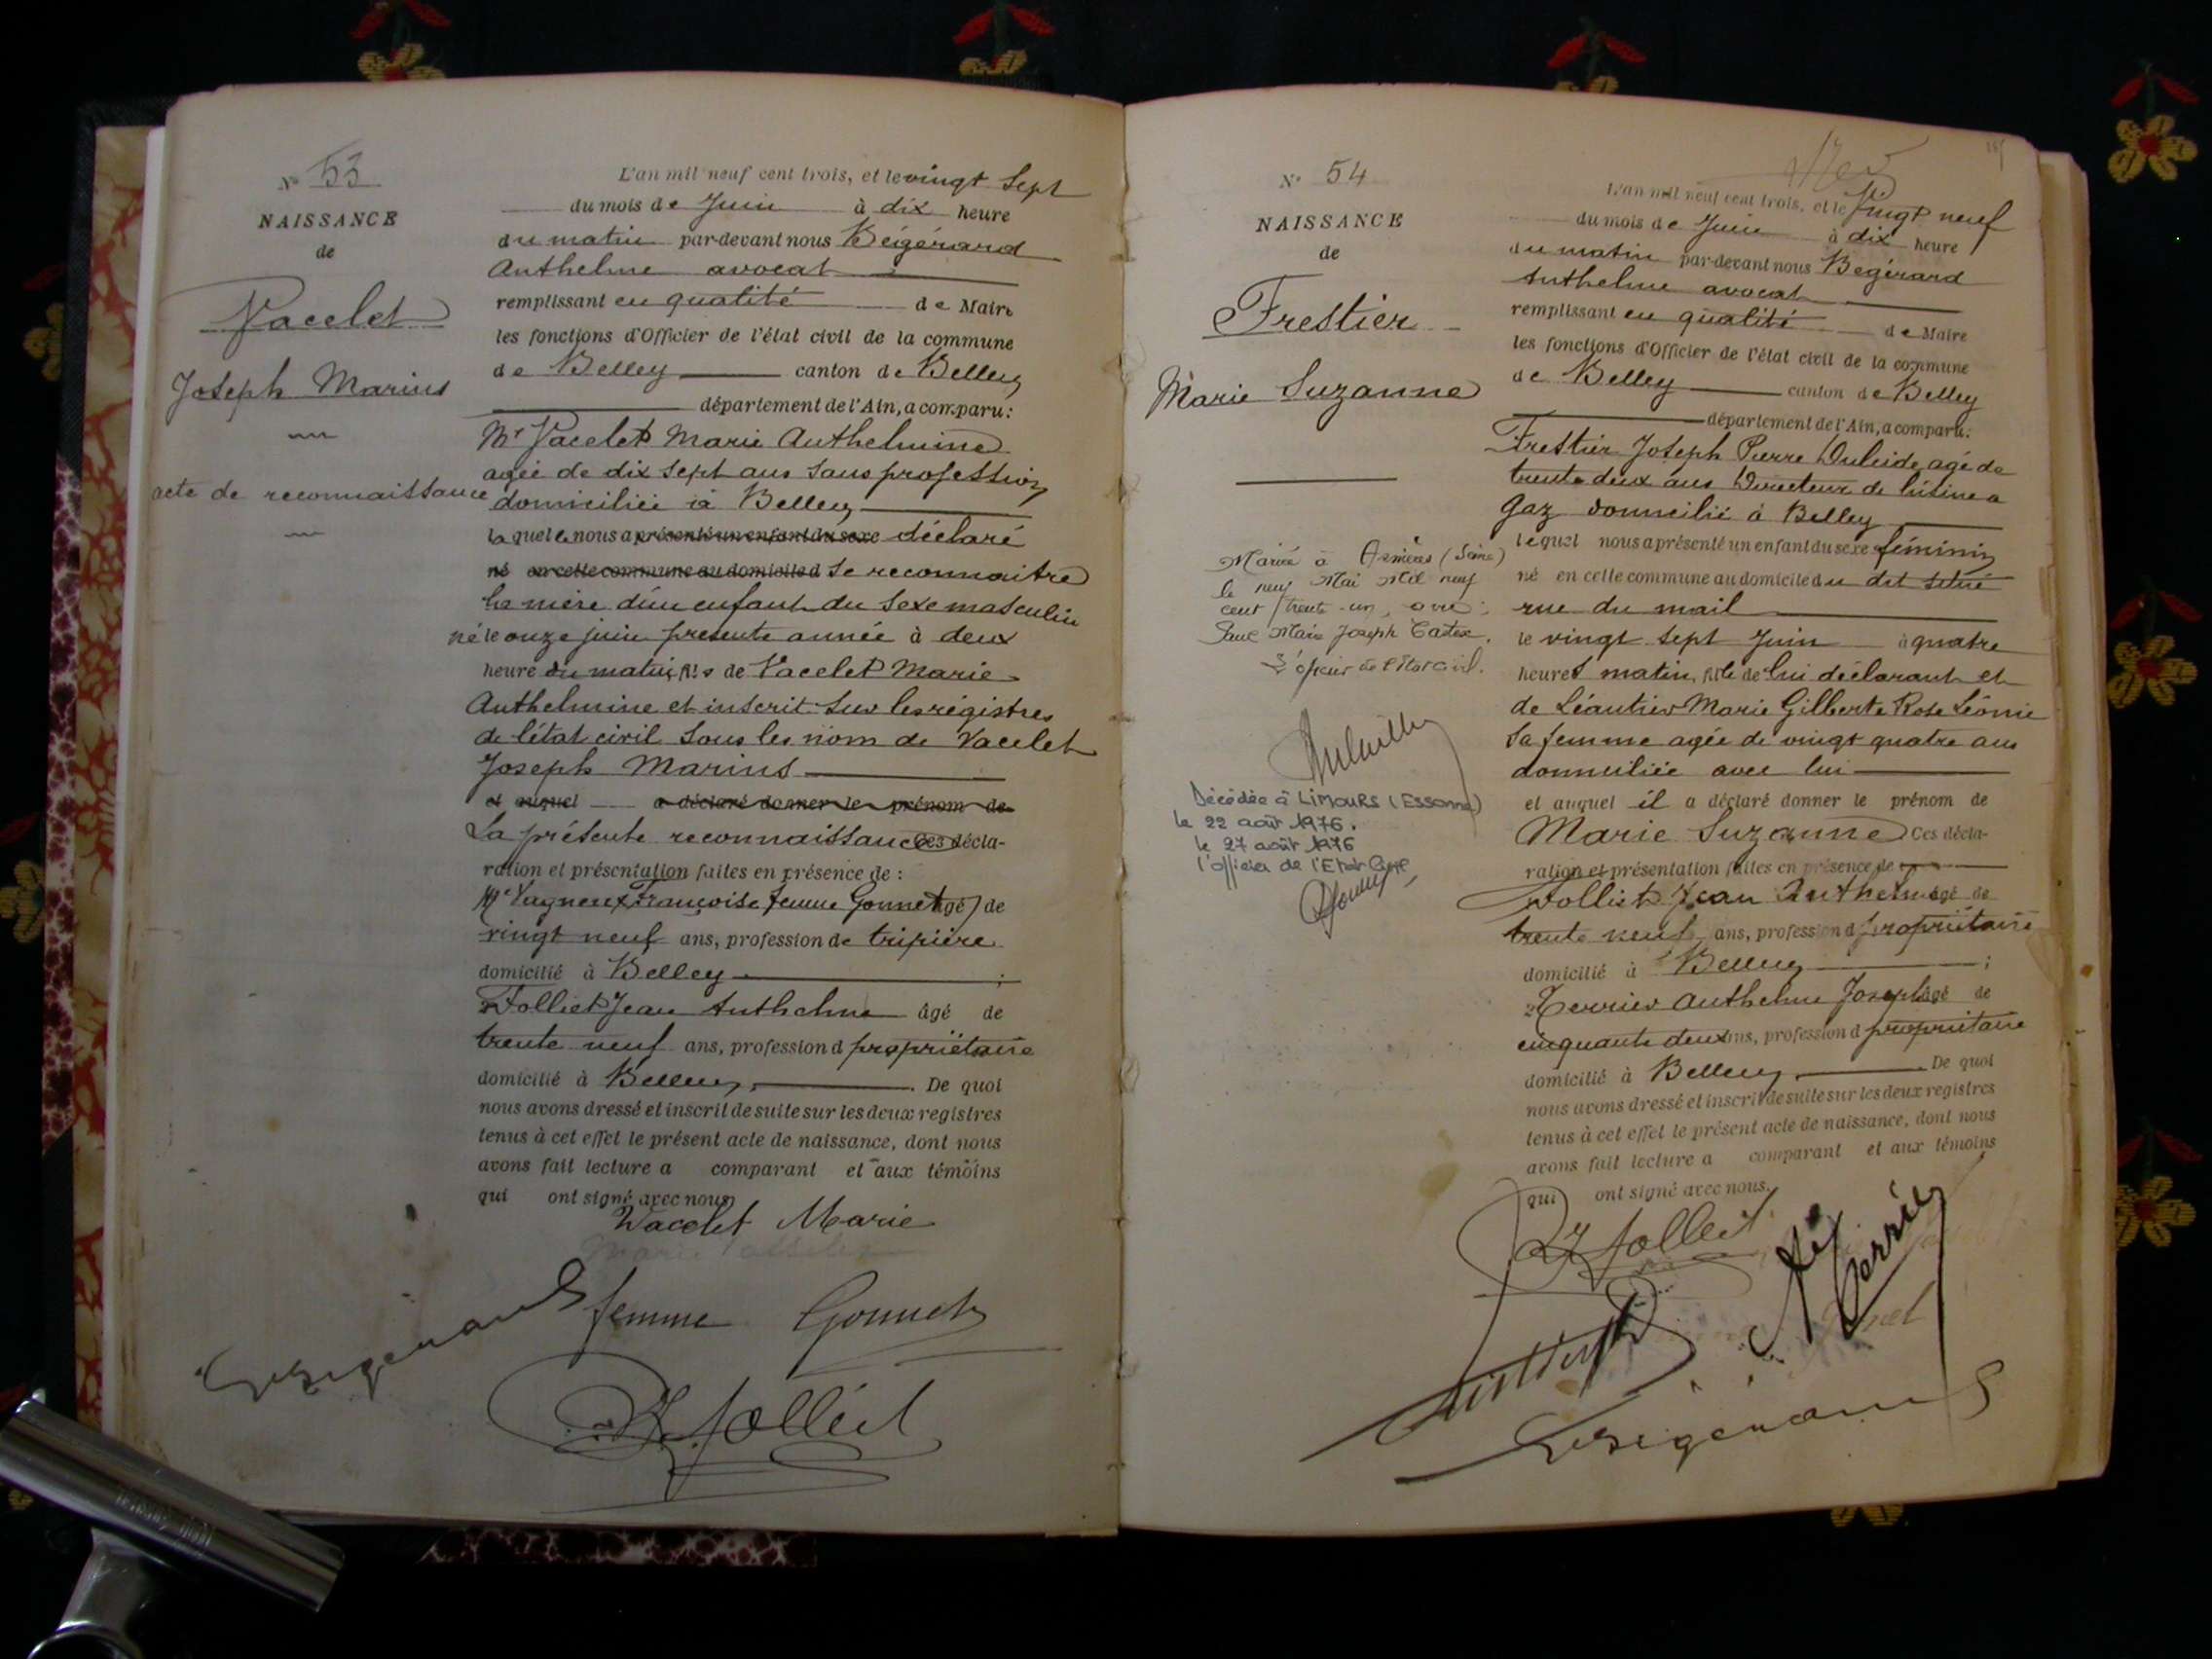 N° 53
NAISSANCE
de
Vacelet
Joseph Marius
acte de reconnaissance
L'an mil neuf cent trois, et le vingt Sept
du mois de Juin à dix heure
du matin par-devant nous Bégérard
Anthelme avocat
remplissant en qualité de Maire
les fonctions d'Officier de l'état civil de la commune
de Belley canton de Belley
département de l'Ain, a comparu:
Vacelet Marie Anthelmine
agée de dix sept ans sans profession
domiciliée à Belley
laquelle nous a présenté un enfant du sexe déclaré
né en cette commune au domicile d se reconnaitre
la mère d'un enfant du sexe masculin
né le onze juin presente année à deux
heure du matin, fils de Vacelet Marie
Anthelmine et inscrit sur les régistres
de l'état civil sous les nom de Vacelet
Joseph Marius
et auquel a déclaré donner le prénom de
La présente reconnaissance Ces décla-
ration et présentation faites en présence de :
Françoise femme Gonnet âgé de
vingt neuf ans, profession de tripière
domicilié à Belley ;
Folliet Jean Anthelme âgé de
trente neuf ans, profession d propriétaire
domicilié à Belley. De quoi
nous avons dressé et inscrit de suite sur les deux registres
tenus à cet effet le présent acte de naissance, dont nous
avons fait lecture a comparant et aux témoins
qui ont signé avec nous
Vacelet Marie
femme Gonnet
Folliet
N° 54
NAISSANCE
de
Frestier
Marie Suzanne
Mariée à Asnières (Seine)
le neuf Mai Mil neuf
cent trente-un, avec :
Paul Marie Joseph Castex.
L'officier de l'état civil.
Décédée à LIMOURS (Essonne)
le 22 août 1976.
le 27 août 1976
l'officier de l'Etat Civil
L'an mil neuf cent trois, et le vingt neuf
du mois de Juin à dix heure
du matin par-devant nous Bégérard
Anthelme avocat
remplissant en qualité de Maire
les fonctions d'Officier de l'état civil de la commune
de Belley canton de Belley
département de l'Ain, a comparu:
Frestier Joseph Pierre agé de
trente deux ans Directeur de l'usine a
Gaz domicilié à Belley
lequel nous a présenté un enfant du sexe féminin
né en cette commune au domicile du dit situé
rue du mail
le vingt sept Juin à quatre
heures matin, fille de lui déclarant et
de Léautier Marie Gilberte Rose Léonie
sa femme agée de vingt quatre ans
domiciliée avec lui
et auquel il a déclaré donner le prénom de
Marie Suzanne Ces décla-
ration et présentation faites en présence de
Folliet Jean Anthelme âgé de
trente neuf ans, profession d propriétaire
domicilié à Belley ;
2° Perrier Anthelme Joseph âgé de
cinquante deux ans, profession d propriétaire
domicilié à Belley. De quoi
nous avons dressé et inscrit de suite sur les deux registres
tenus à cet effet le présent acte de naissance, dont nous
avons fait lecture a comparant et aux témoins
qui ont signé avec nous.
Folliet
Perrier